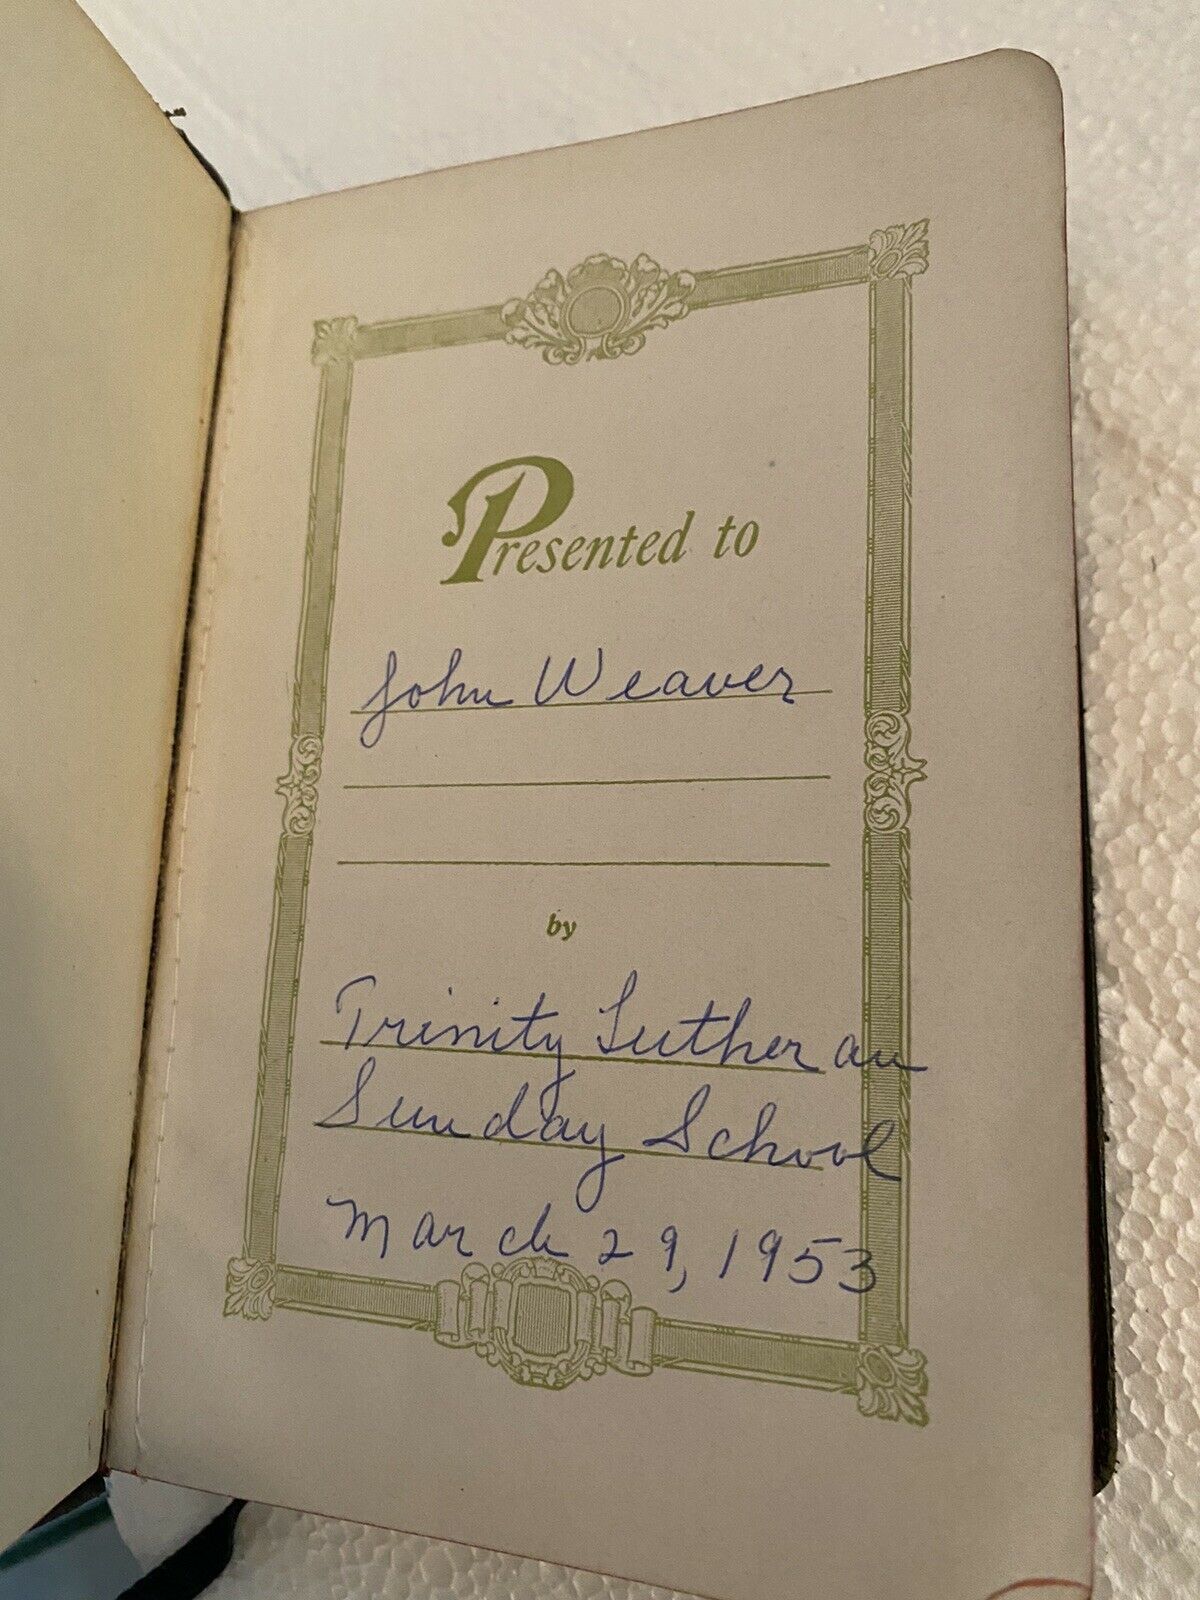 Presented to
John Weaver
by
Trinity Lutheran
Sunday School
March 29, 1953